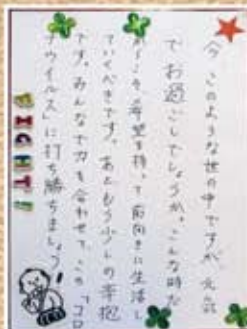 今、このような世の中ですが、元気
で お過ごしでしょうか。こんな時だ
からこそ、希望を持って前向きに生活し
ていくべきです。あともう少しの辛抱
です。みんなで力を合わせて、この「コロ
ナウイルス」に打ち勝ちましょう!
FIGHT!